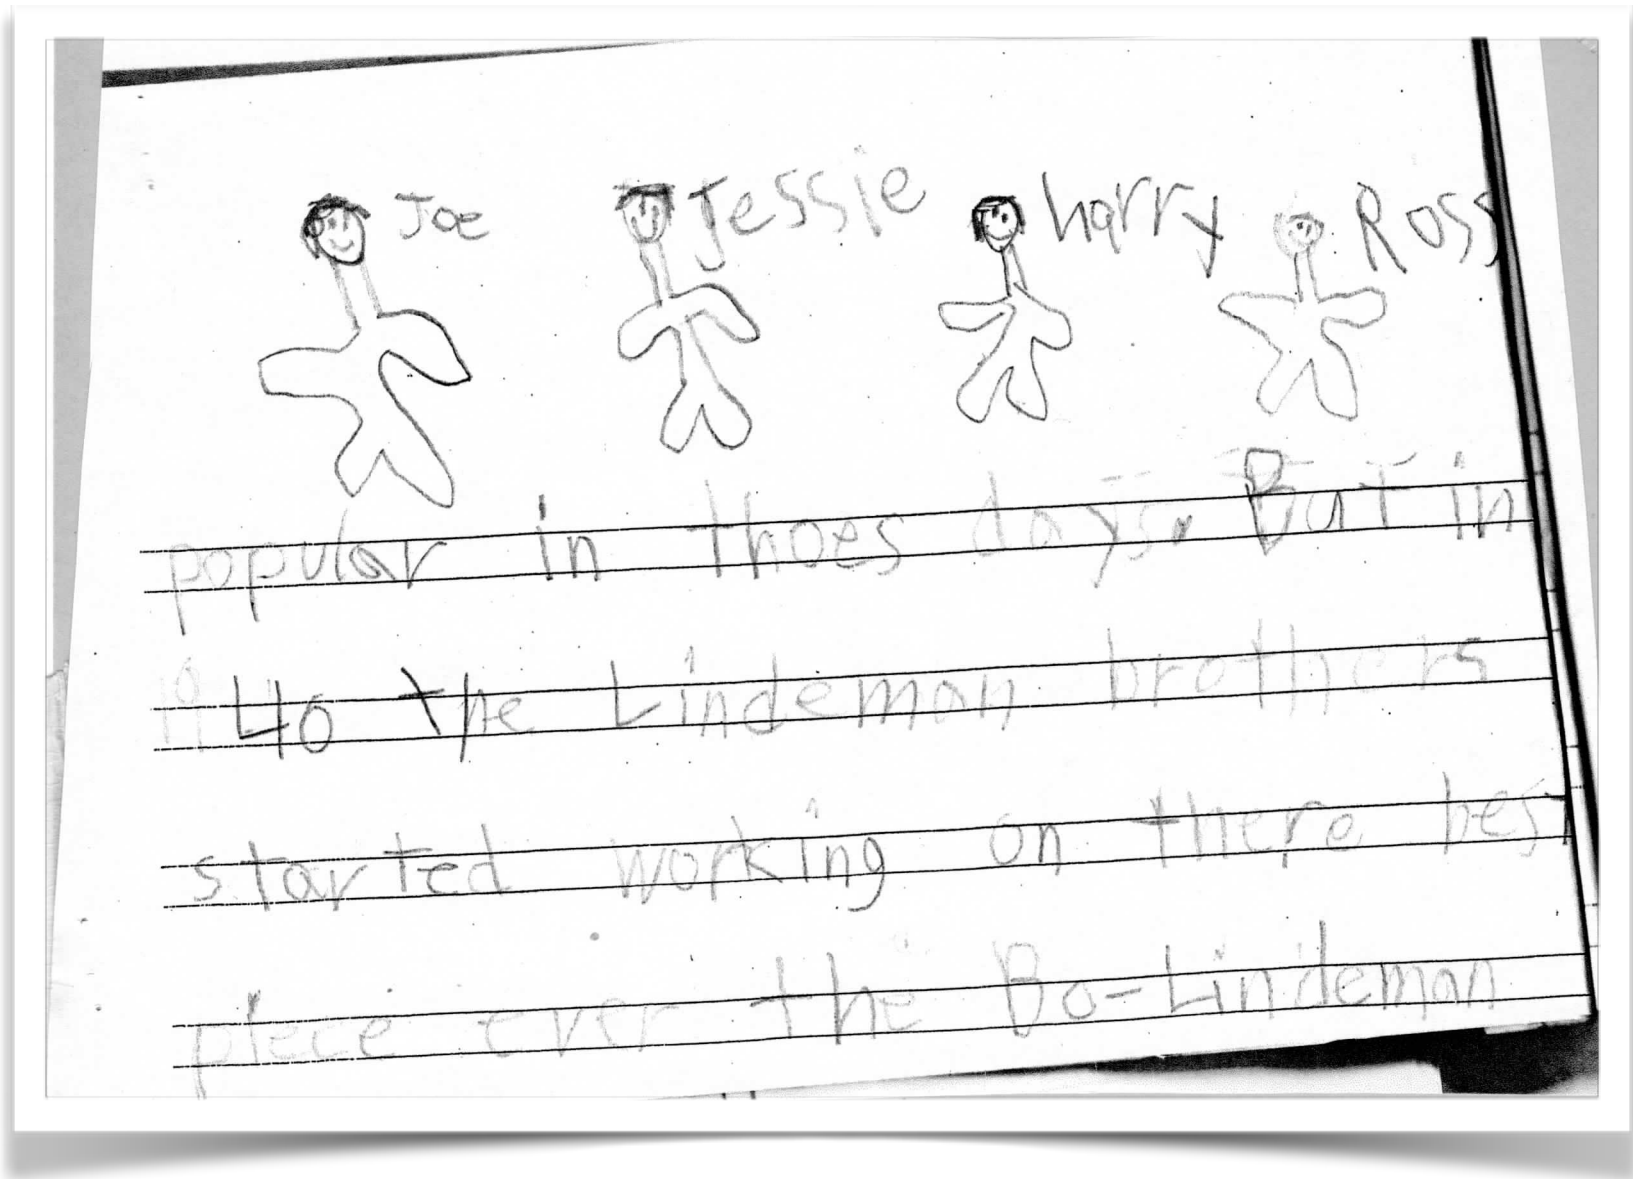 Joe Jessie harry Ross
popular in thoes days. But in
1940 the Lindeman brothers
started working on there best
piece ever the Bo-Lindeman